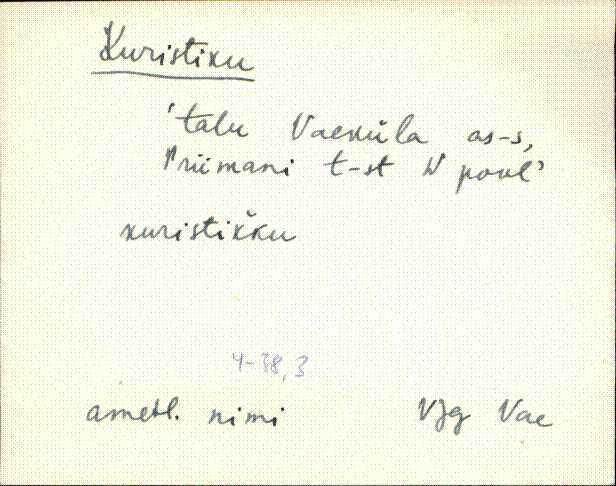 Kuristiku
'talu Vaeküla as-s,
Priimani t-st W pool'
kuristik̆ku
4-38,3
ametl. nimi VJg Vae